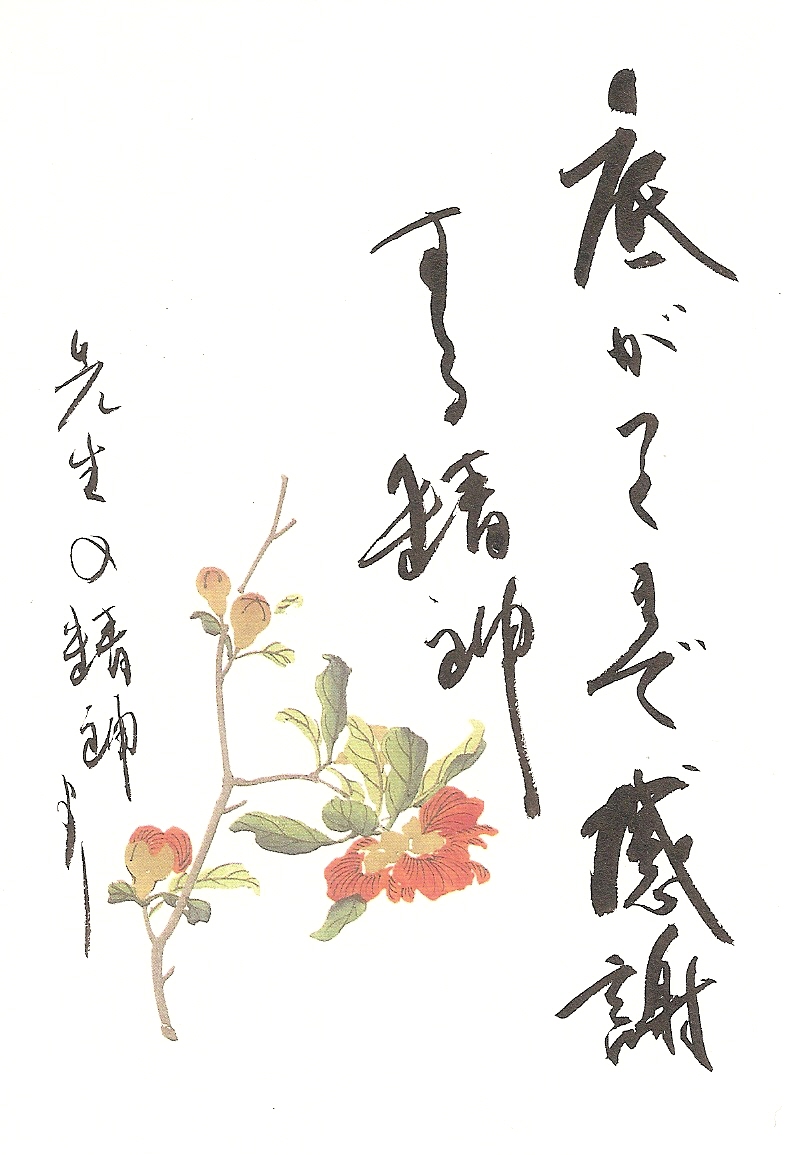 底が まで感謝
する精神
先生の精神より